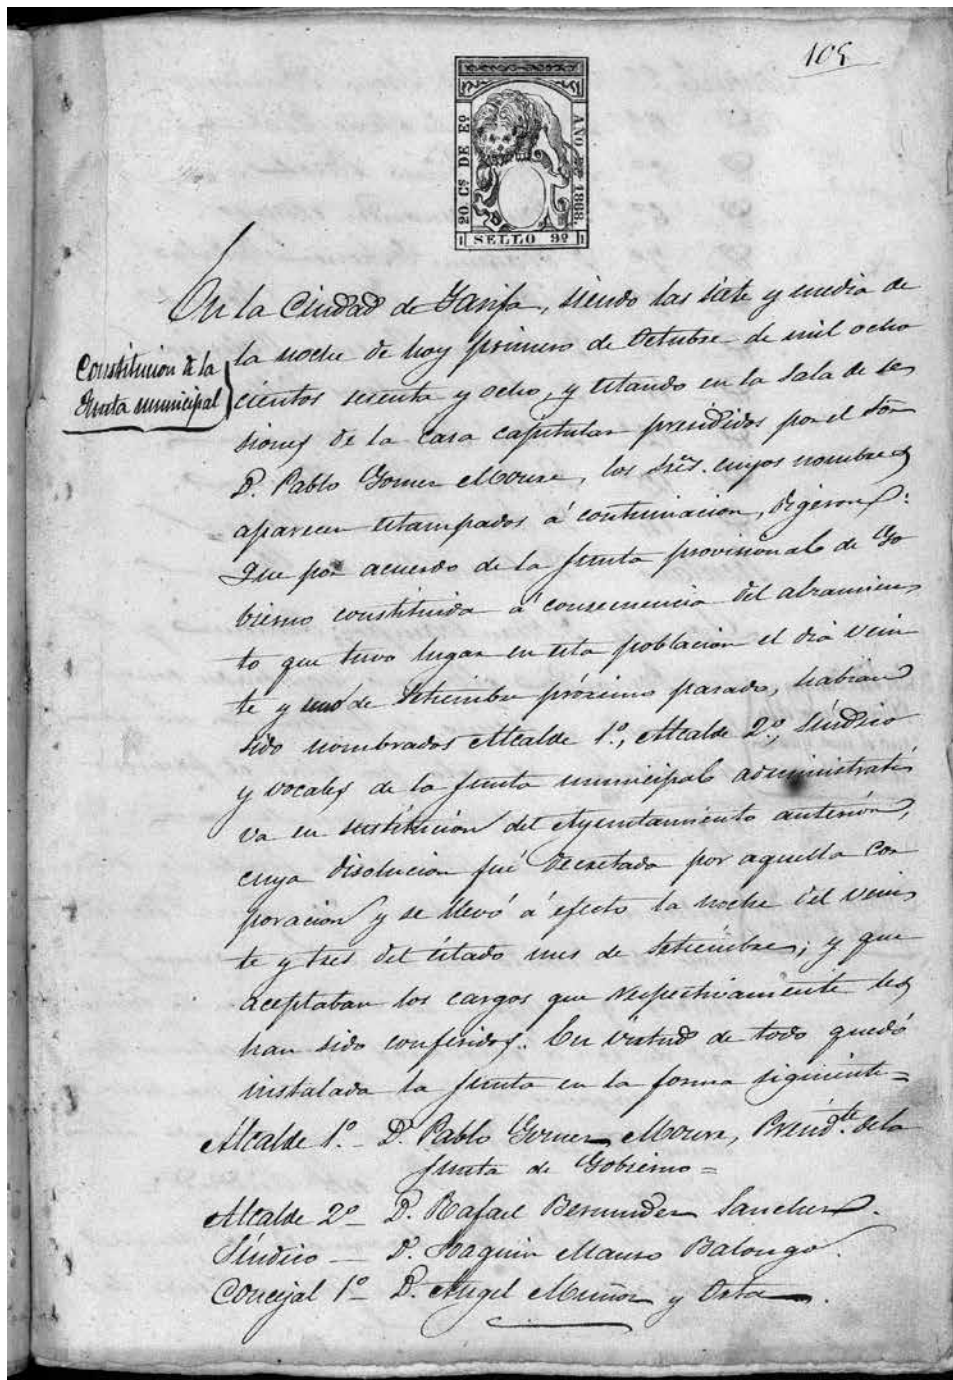 105
20 Cs DE Eo
AÑO DE 1868.
SELLO 9º
En la Ciudad de Tarifa, siendo las siete y media de
Constitucion de la
Junta municipal
la noche de hoy primero de Octubre de mil ocho
cientos sesenta y ocho, y estando en la Sala de se
siones de la casa capitular presididos por el Sor
D. Pablo Gomez Moure, los Sres. cuyos nombres
aparecen estampados á continuacion, digeron:
Que por acuerdo de la Junta provisional de Go
bierno constituida á consecuencia del alzamien
to que tuvo lugar en esta poblacion el dia vein
te y uno de Setiembre próximo pasado, habian
sido nombrados Alcalde 1º., Alcalde 2º., Síndico
y vocales de la Junta municipal administrati
va en sustitucion del Ayuntamiento anterior,
cuya disolucion fué decretada por aquella cor
poracion y se llevó á efecto la noche del vein
te y tres del citado mes de Setiembre; y que
aceptaban los cargos que respectivamente les
han sido conferidos. En virtud de todo quedó
instalada la Junta en la forma siguiente=
Alcalde 1º.- D. Pablo Gomez Moure, Presidte. de la
Junta de Gobierno=
Alcalde 2º- D. Rafael Bermudez Sanchez.
Síndico - D. Joaquin Manso Balongo.
Concejal 1º- D. Angel Muñoz y Orta.